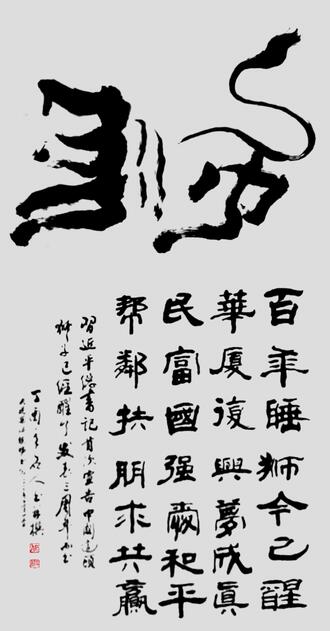 百年睡狮今已醒
華厦復興夢成真
民富國强愛和平
帮鄰扶朋求共赢
習近平總書記首次宣告中國這頭
狮子已經醒了發表三周年
丁酉年